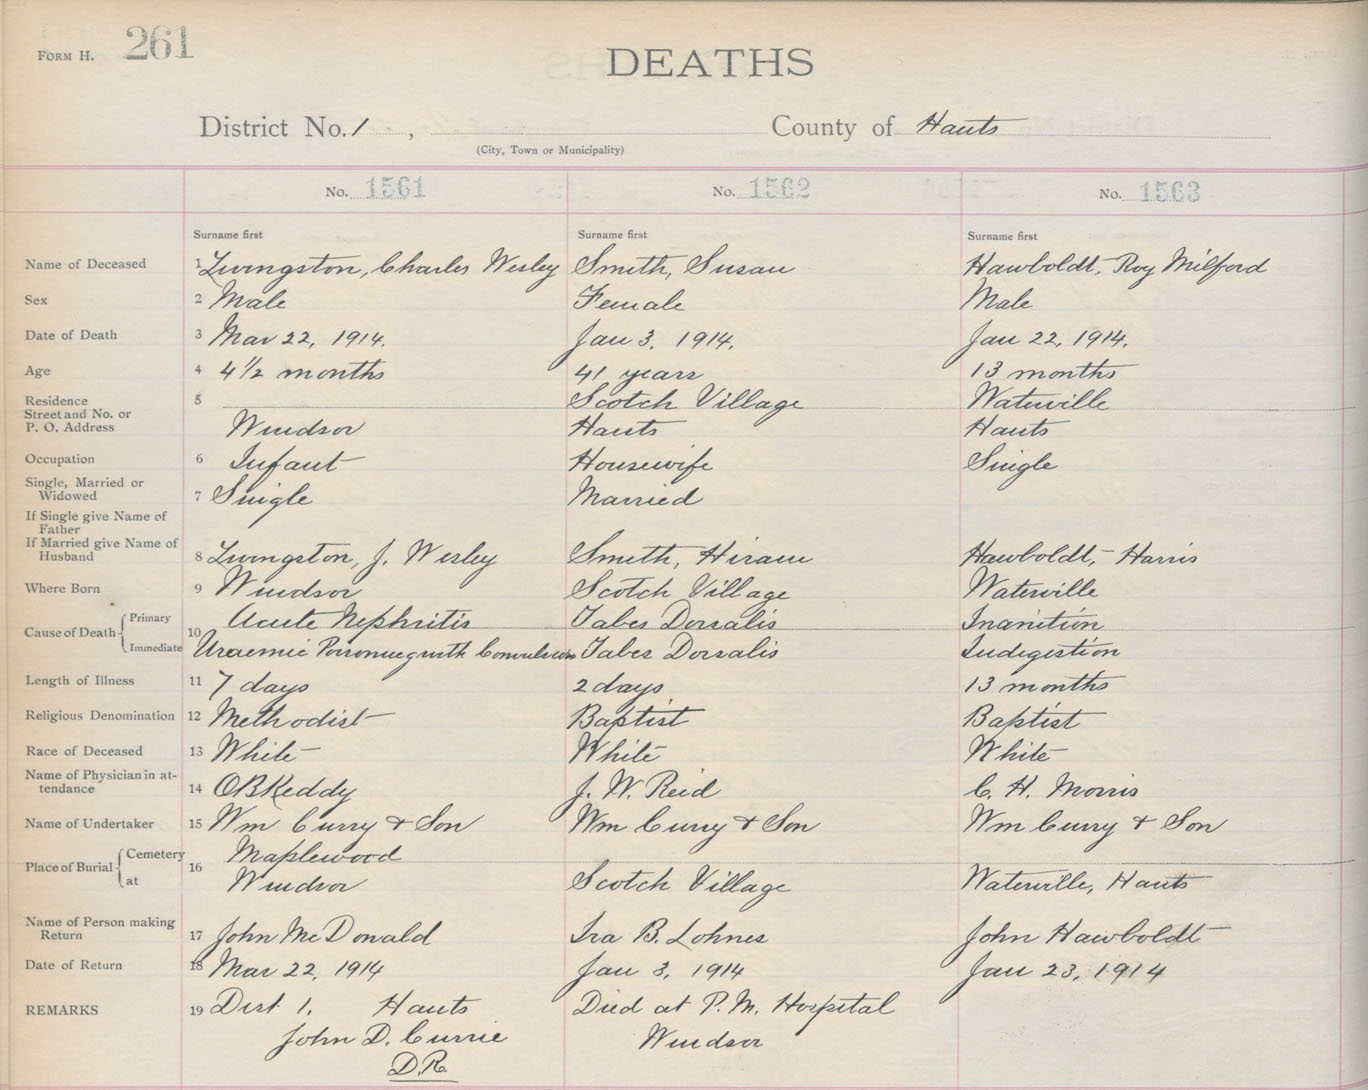 FORM H. 261
DEATHS
District No. 1 , County of Hants
(City, Town or Municipality)
No. 1561 No. 1562 No. 1563
Surname first Surname first Surname first
Name of Deceased 1 Livingston, Charles Wesley Smith, Susan Hawboldt, Roy Milford
Sex 2 Male Female Male
Date of Death 3 Mar 22, 1914. Jan 3, 1914. Jan 22, 1914.
Age 4 4 1/2 months 41 years 13 months
Residence 5 Scotch Village Waterville
Street and No. or
P. O. Address Windsor Hants Hants
Occupation 6 Infant Housewife Single
Single, Married or
Widowed 7 Single Married
If Single give Name of
Father
If Married give Name of
Husband 8 Livingston, J. Wesley Smith, Hiram Hawboldt, Harris
Where Born 9 Windsor Scotch Village Waterville
Primary Acute Nephritis Tabes Dorsalis Inanition
Cause of Death 10
Immediate Uraemic Poisoning with Convulsions Tabes Dorsalis Indigestion
Length of Illness 11 7 days 2 days 13 months
Religious Denomination 12 Methodist Baptist Baptist
Race of Deceased 13 White White White
Name of Physician in at-
tendance 14 O B Keddy J. W. Reid C. H. Morris
Name of Undertaker 15 Wm Curry + Son Wm Curry + Son Wm Curry + Son
Cemetery Maplewood
Place of Burial 16
at Windsor Scotch Village Waterville, Hants
Name of Person making
Return 17 John McDonald Ira B. Lohnes John Hawboldt
Date of Return 18 Mar 22, 1914 Jan 3, 1914 Jan 23, 1914
REMARKS 19 Dist 1. Hants Died at P. M. Hospital
John D. Currie Windsor
D.R.